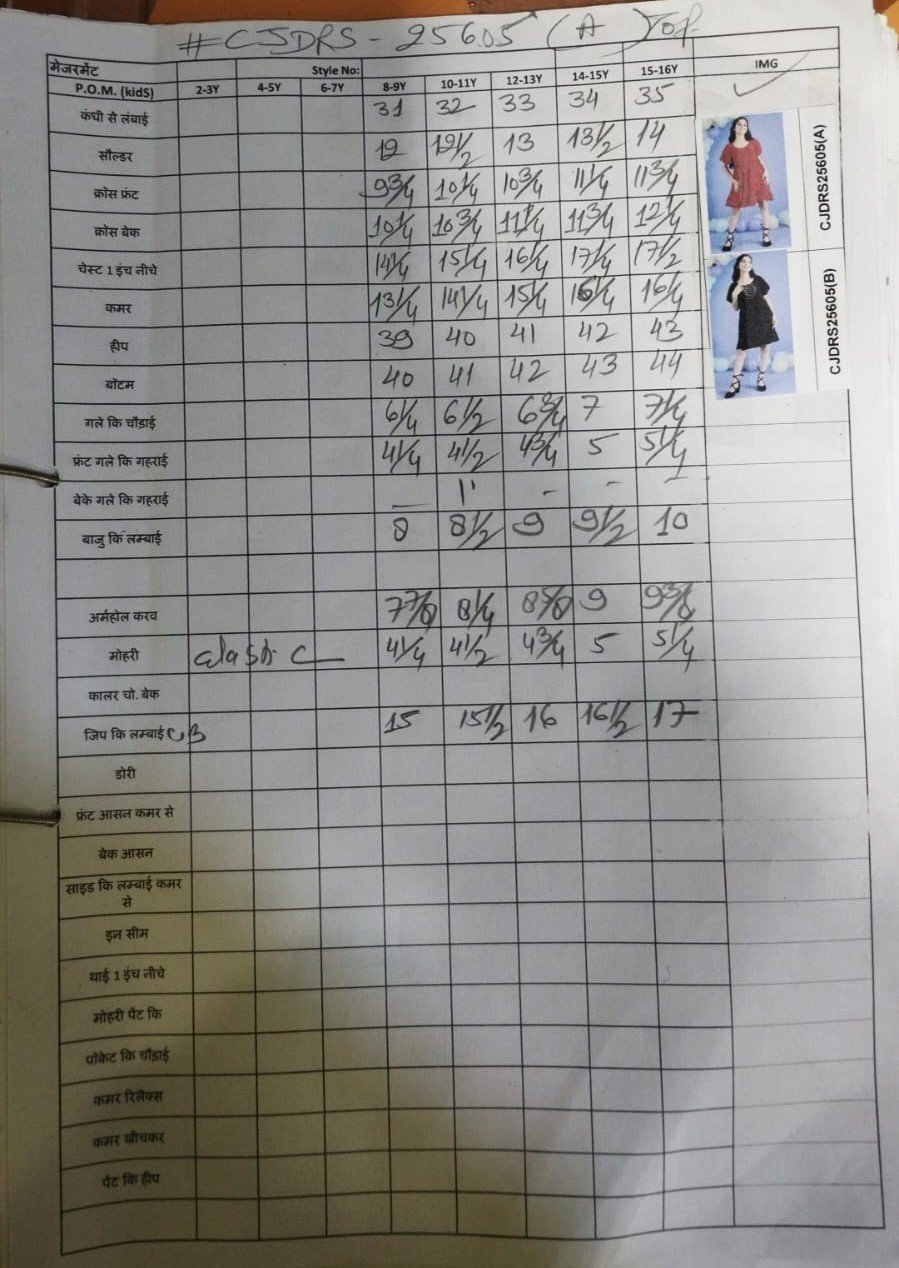 #CJDRS-25605 (A) Top
मेजरमेंट Style No: IMG
P.O.M. (kidS) 2-3Y 4-5Y 6-7Y 8-9Y 10-11Y 12-13Y 14-15Y 15-16Y
कंधी से लंबाई 31 32 33 34 35
सौल्डर 12 12 1/2 13 13 1/2 14
क्रोस फ्रंट 9 3/4 10 1/4 10 3/4 11 1/4 11 3/4
क्रोस बेक 10 1/4 10 3/4 11 1/4 11 3/4 12 1/4
चेस्ट 1 इंच नीचे 14 1/4 15 1/4 16 1/4 17 1/4 17 1/2
कमर 13 1/4 14 1/4 15 1/4 16 1/4 16 1/4
हीप 39 40 41 42 43
बॉटम 40 41 42 43 44
गले कि चौड़ाई 6 1/4 6 1/2 6 3/4 7 7 1/4
फ्रंट गले कि गहराई 4 1/4 4 1/2 4 3/4 5 5 1/4
बेके गले कि गहराई — 1" - -
बाजु कि लम्बाई 8 8 1/2 9 9 1/2 10
अर्महोल करव 7 7/8 8 1/4 8 5/8 9 9 3/8
मोहरी elastic 4 1/4 4 1/2 4 3/4 5 5 1/4
कालर चो. बेक
जिप कि लम्बाई CB 15 15 1/2 16 16 1/2 17
डोरी
फ्रंट आसन कमर से
बेक आसन
साइड कि लम्बाई कमर
से
इन सीम
थाई 1 इंच नीचे
मोहरी पैंट कि
पॉकेट कि चौड़ाई
कमर रिलैक्स
कमर खीचकर
पैंट कि हीप
CJDRS25605(A)
CJDRS25605(B)